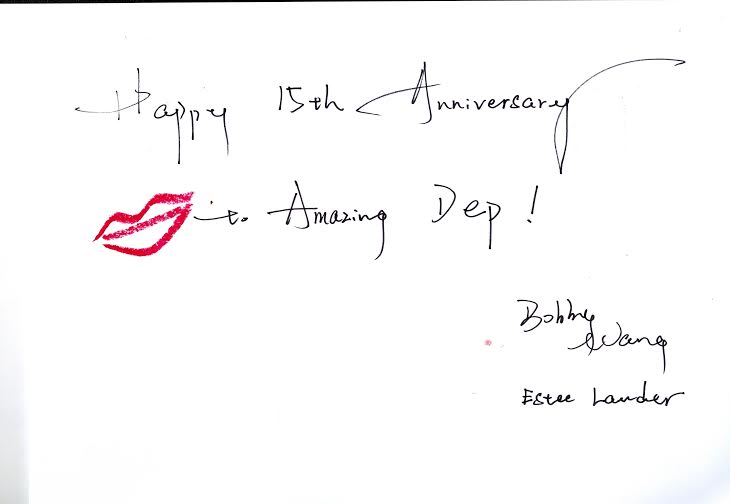 Happy 15th Anniversary
to Amazing Dep!
Bobby
Wang
Estee Lauder